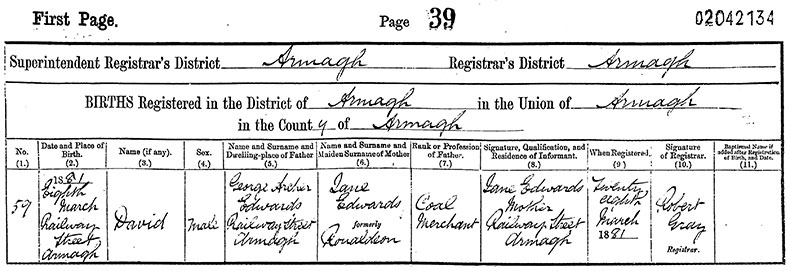 First Page. Page 39 02042134
Superintendent Registrar's District Armagh Registrar's District Armagh
BIRTHS Registered in the District of Armagh in the Union of Armagh
in the County of Armagh
No.
(1.)
Date and Place of
Birth.
(2.)
Name (if any).
(3.)
Sex.
(4.)
Name and Surname and
Dwelling-place of Father
(5.)
Name and Surname and
Maiden Surname of Mother
(6.)
Rank or Profession
of Father
(7.)
Signature, Qualification, and
Residence of Informant.
(8.)
When Registered.
(9.)
Signature
of Registrar.
(10.)
Baptismal Name if
added after Registration
of Birth, and Date.
(11.)
59
1881
Eighth
March
Railway
Street,
Armagh
David
Male
George Archer
Edwards
Railway Street
Armagh
Jane
Edwards
formerly
Ronaldson
Coal
Merchant
Jane Edwards
Mother
Railway Street
Armagh
Twenty
eighth
March
1881
Robert
Gray
Registrar.